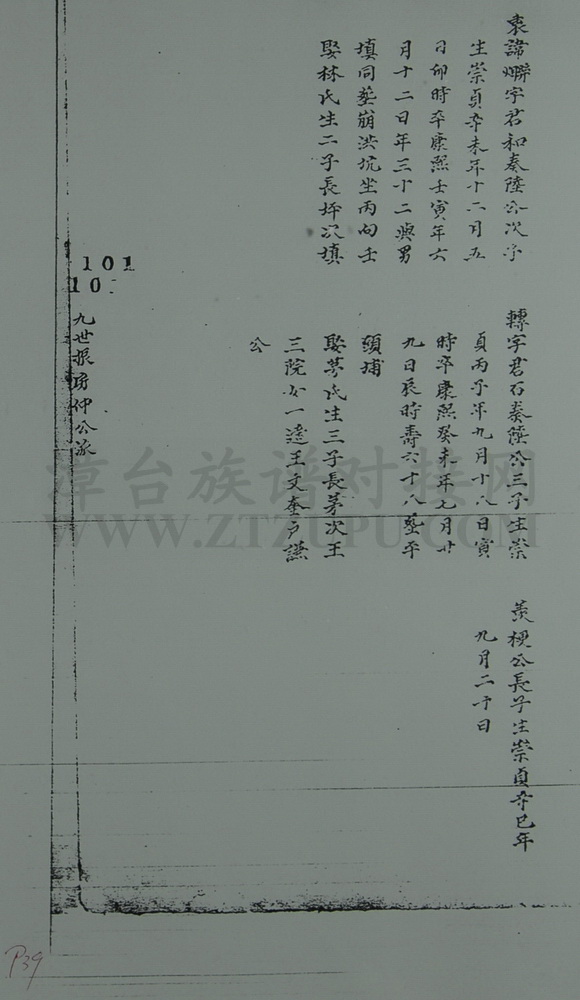 衷諱聨字君和奏陸公次子
生崇貞辛未年十二月五
日卯時卒康熙壬寅年六
月十二日年三十二與男
填同塟崩洪坑坐丙向壬
娶林氏生二子長坪次填
轉字君石奏陸公三子生崇
貞丙子年九月十八日寅
時卒康熙癸未年七月廿
九日辰時壽六十八塟平
頭埔
娶蔡氏生三子長茅次王
三院女一適王文奎户謙
公
羨梗公長子生崇貞辛巳年
九月二十日
101
10
九世振 仲公派
漳台族谱对接网
WWW.ZTZUPU.COM
P39